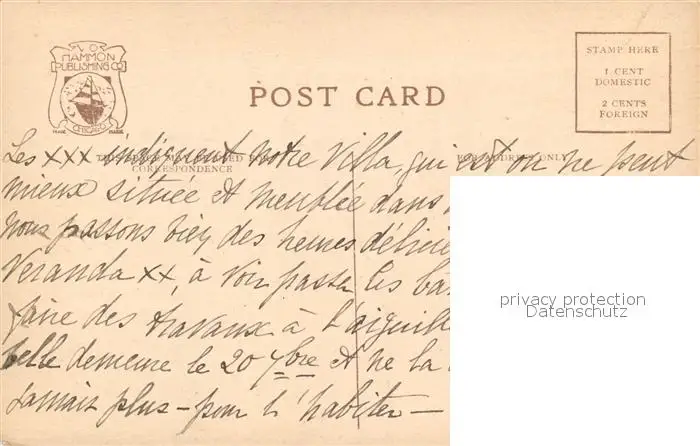 V. O.
HAMMON
PUBLISHING CO
TRADE MARK
CHICAGO
POST CARD
STAMP HERE
1 CENT
DOMESTIC
2 CENTS
FOREIGN
CORRESPONDENCE
FOR ADDRESS ONLY
Les XXX indiquent notre Villa, qui est on ne peut
mieux située et meublée dans
nous passons bien des heures
Veranda XX, à voir passer les
faire des travaux à l'aiguille
belle demeure le 20 7bre et ne la
jamais plus - pour l'habiter -
privacy protection
Datenschutz